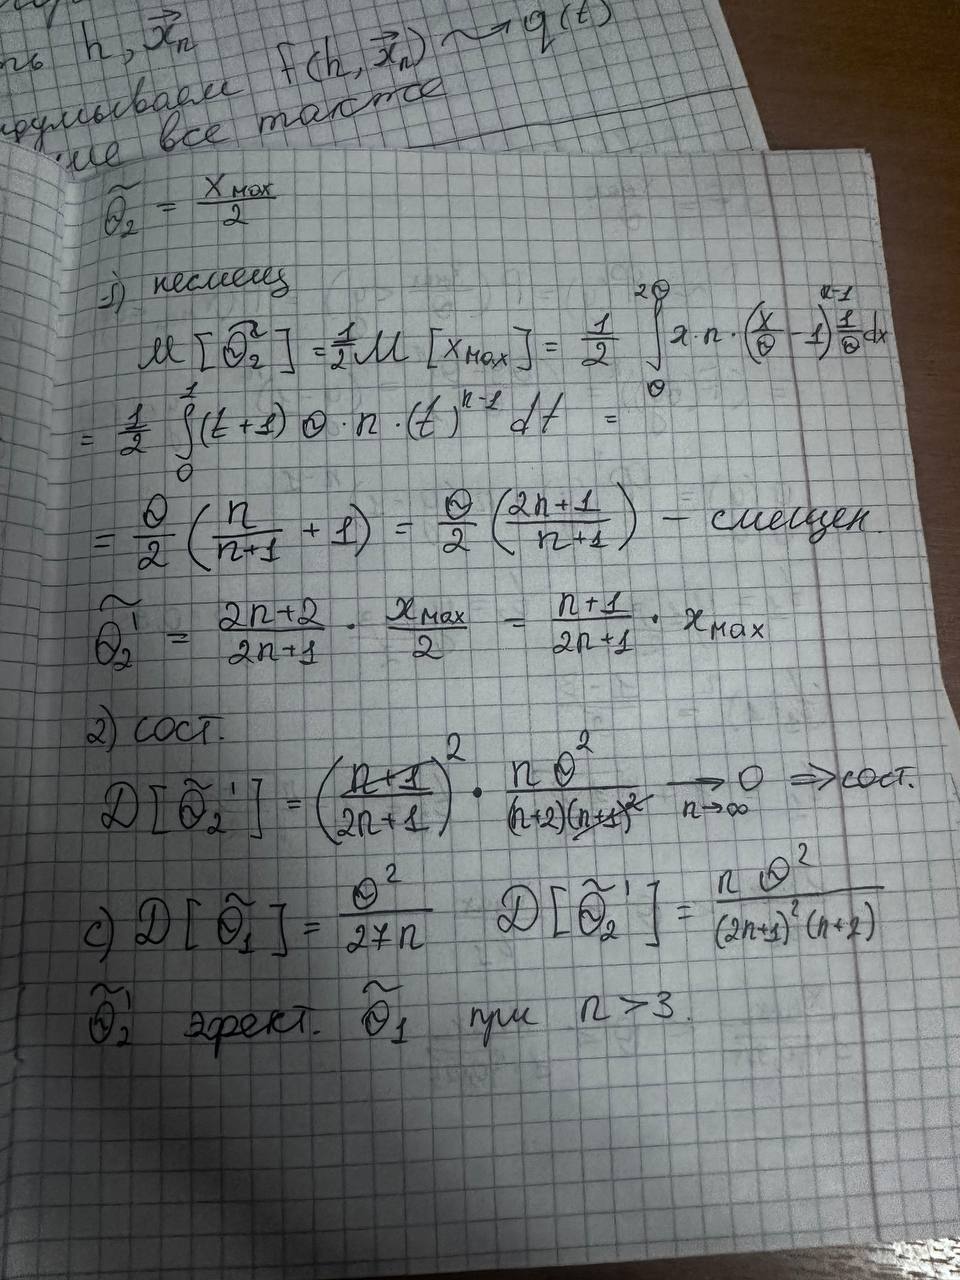 h, x⃗ₙ
f(h, x⃗ₙ) ⤳ q(t)
все также
θ̃₂ = xмах/2
1) несмещ
M[θ̃₂] = 1/2 M[xмах] = 1/2 ∫_θ^{2θ} x·n·(x/θ − 1)^{n-1} 1/θ dx
= 1/2 ∫_0^1 (t+1) θ·n·(t)^{n-1} dt =
= θ/2 (n/(n+1) + 1) = θ/2 ((2n+1)/(n+1)) – смещен.
θ̃₂' = (2n+2)/(2n+1) · xмах/2 = (n+1)/(2n+1) · xмах
2) сост.
D[θ̃₂'] = ((n+1)/(2n+1))² · nθ²/((n+2)(n+1)²) →_{n→∞} 0 ⇒ сост.
c) D[θ̃₁] = θ²/(27n) D[θ̃₂'] = nθ²/((2n+1)²(n+2))
θ̃₂' эфект. θ̃₁ при n > 3.